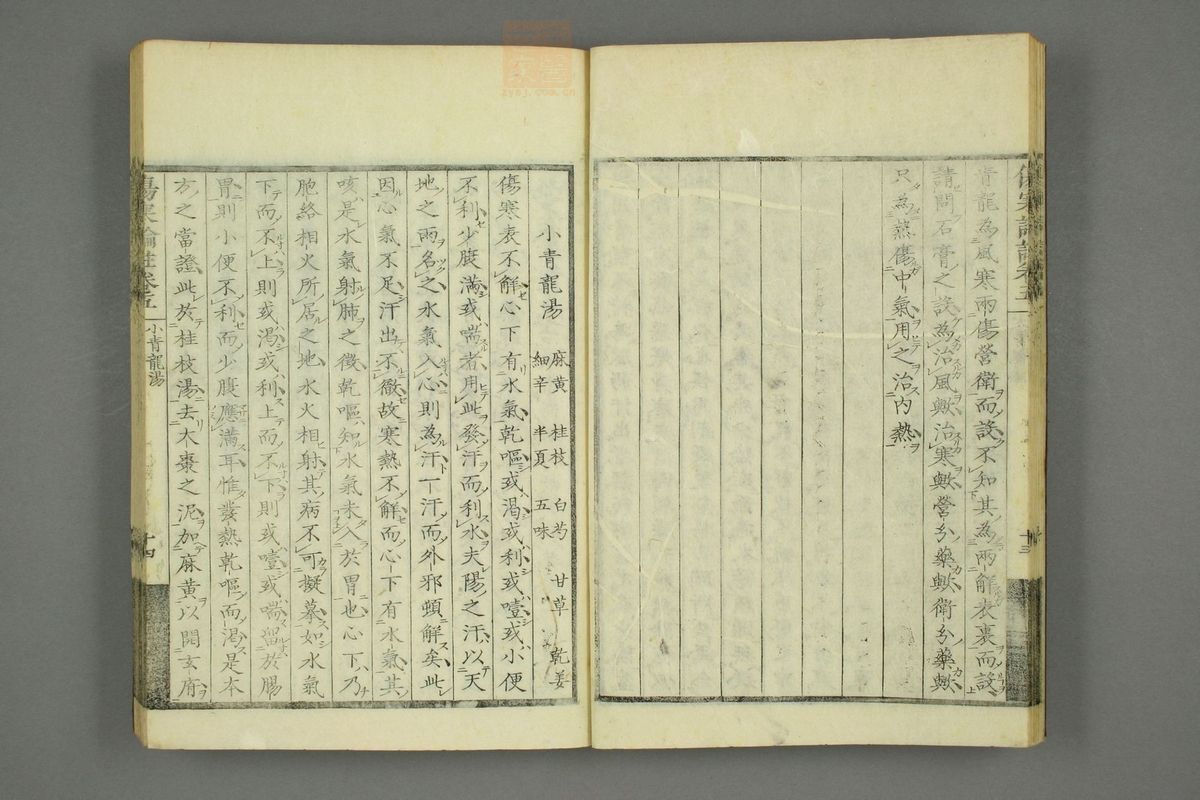 青龍為風寒兩傷營衛而設不知其為兩解表裏而設
請問石膏之設為治風歟治寒歟營分藥歟衛分藥歟
只為熱傷中氣用之治內熱
傷寒論註卷五
十三
小青龍湯
麻黃 桂枝 白芍 甘草 乾姜
細辛 半夏 五味
傷寒表不解心下有水氣乾嘔或渴或利或噎或小便
不利少腹滿或喘者用此發汗而利水夫陽之汗以天
地之雨名之水氣入心則為汗一汗而外邪頓解矣此
因心氣不足汗出不徹故寒熱不解而心下有水氣其
咳是水氣射肺之徵乾嘔知水氣未入於胃也心下乃
胞絡相火所居之地水火相射其病不可擬摹如水氣
下而不上則或渴或利上而不下則或噎或喘留於腸
胃則小便不利而少腹應滿耳惟發熱乾嘔而渴是本
方之當證此於桂枝湯去大棗之泥加麻黃以開玄府
傷寒論註卷五
小青龍湯
十四
zysj.com.cn